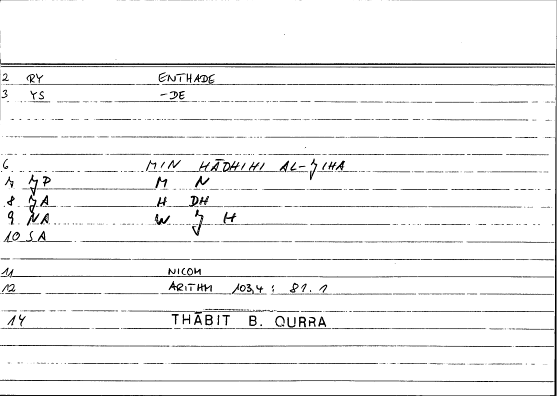 2 RY ENTHADE
3 YS -DE
6 MIN HĀDHIHI AL-ǦIHA
7 ǦP M N
8 ǦA H DH
9 NA W Ǧ H
10 SA
11 NICOM
12 ARITHM 103,4 : 81.1
14 THĀBIT B. QURRA